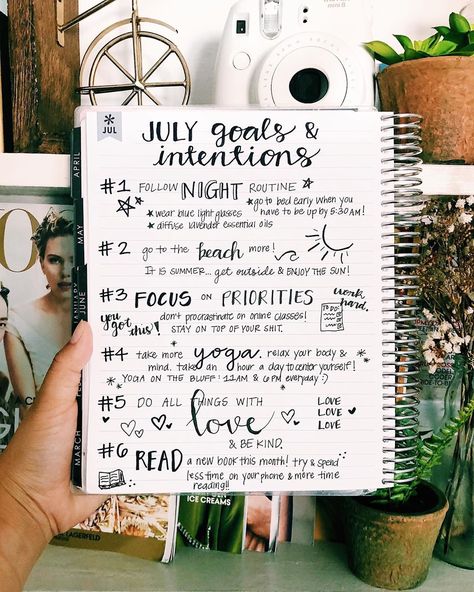 mini 8
JUL
JULY goals &
intentions
#1 FOLLOW NIGHT ROUTINE
* go to bed early when you
have to be up by 5:30AM!
* wear blue light glasses
* diffuse lavender essential oils
#2 go to the beach more!
IT IS SUMMER... get outside & ENJOY THE SUN!
#3 FOCUS ON PRIORITIES
work
hard.
you
got this!
don't procrastinate on online classes!
STAY ON TOP OF YOUR SHIT.
TO DO
#4 take more yoga. relax your body &
mind. take an hour a day to center yourself!
YOGA ON THE BLUFF: 11AM & 6PM everyday :)
#5 DO ALL THINGS WITH
love
& BE KIND.
LOVE
LOVE
LOVE
#6 READ a new book this month! try & spend
less time on your phone & more time
reading!!
APRIL
MAY
JUNE
MARCH
O
LAGERFELD
ICE CREAMS
TO-DIE-FOR